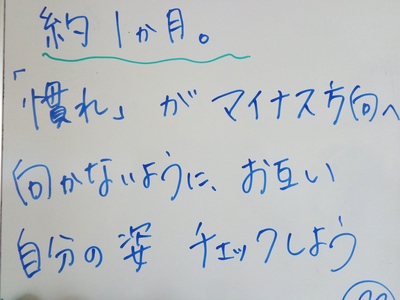 約1か月。
「慣れ」がマイナス方向へ
向かないように、お互い
自分の姿 チェックしよう